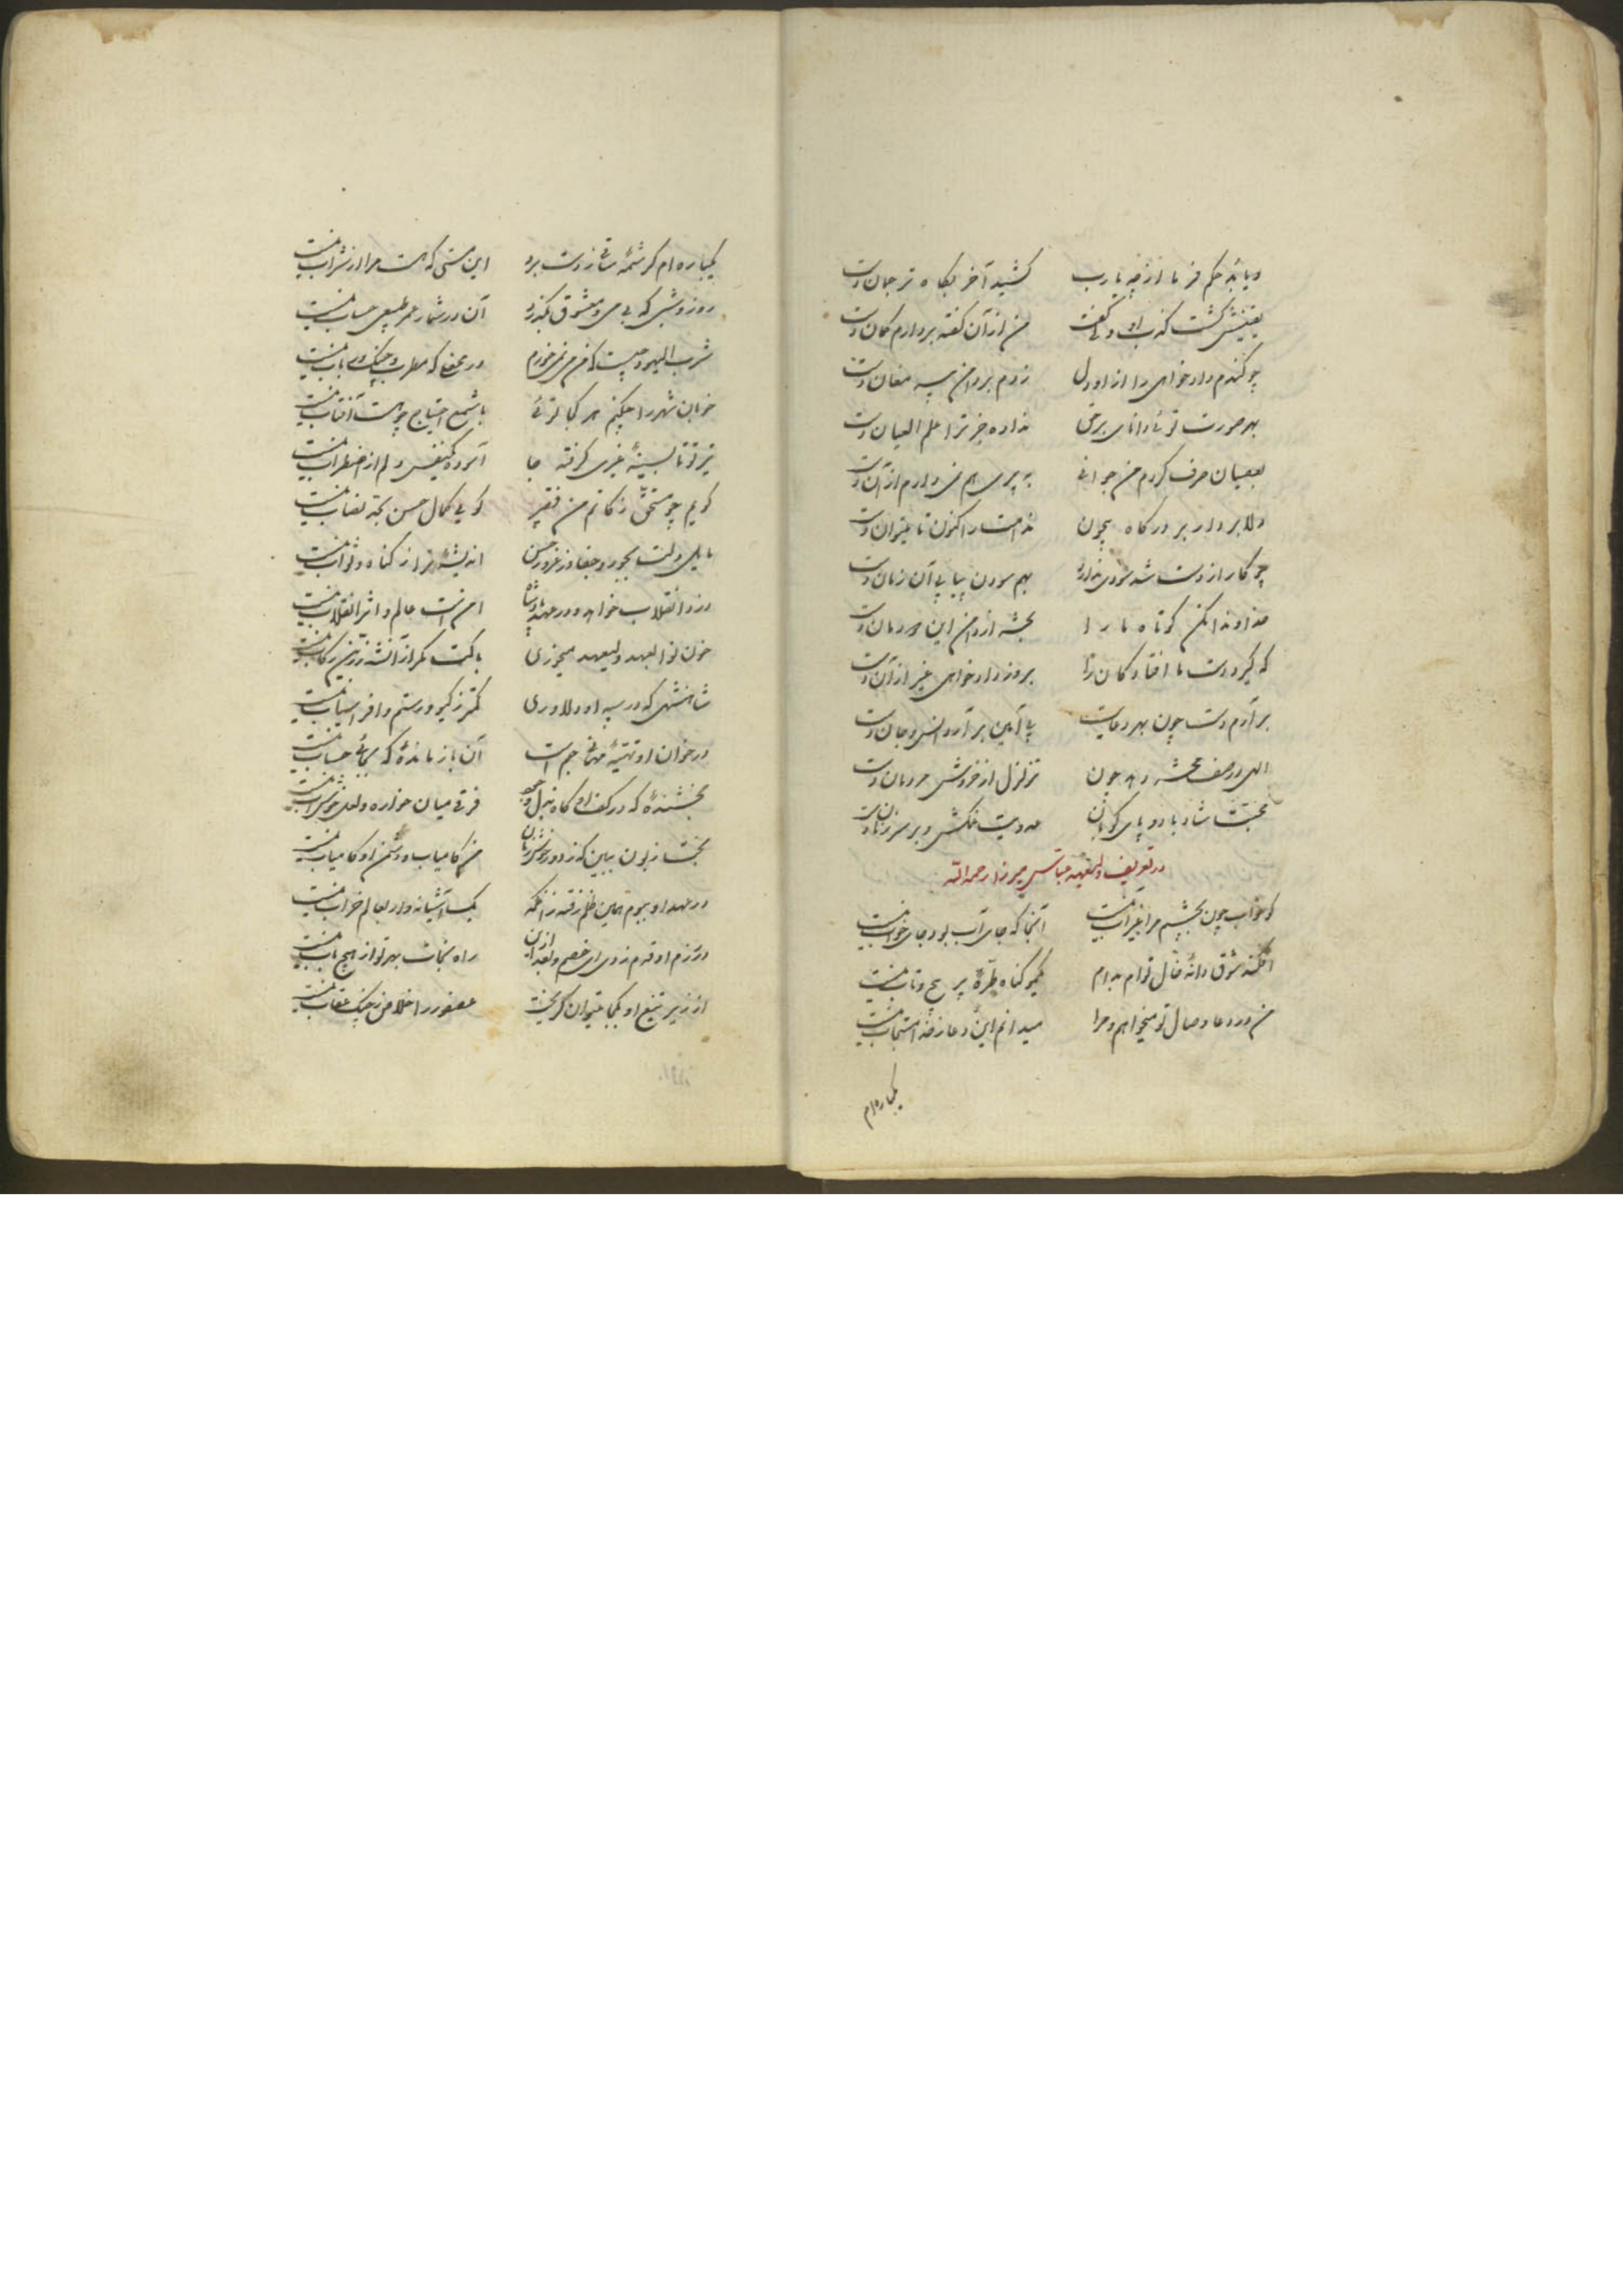 کشید آخر بکاه ترجمان دست
یقینش گشت کذب او و لی گفت من از آن گفته بردارم کمان دست
چو کندم دادخواهی را از او دل زدم بر دامن پیر مغان دست
بهر صورت توئی دانای برحق نداده جز ترا علم العیان دست
بعصیان صرف کردم من جوانی به پیری هم نمی دارم از آن دست
دلا بردار بر درگاه بیچون ندامت را کنون تا میتوان دست
چو کار از دست شد سودی ندارد بهم سودن پیاپی آن زمان دست
خداوندا مکن کوتاه ما را بحشر از دامن این دودمان دست
که گیرد دست ما افتادگان را بروز دادخواهی غیر از آن دست
بر آرم دست چون بهر دعایت پی آمین بر آرد انس و جان دست
الهی در صف محشر دهد چون تزلزل از خروش مردمان دست
محبت شاد باد و پای کوبان عدویت غمکش و بر سر زنان دست
در تعریف ولیعهد عباس میرزا رحمه الله
کو خواب چون بچشم مرا غیر آب نیست آنجا که جای آب بود جای خواب نیست
افکند شوق دانهٔ خال توام بدام گیسو گناه طرهٔ پر پیچ و تاب نیست
من در دعا وصال تو میخواهم و مرا میدانم این دعا ز خدا مستجاب نیست
یکباره ام
یکباره ام کرشمهٔ ساقی ز دست برد این مستی که هست مرا از شراب نیست
روز و شبی که بی می و معشوق بگذرد آن در شمار عمر طبیعی حساب نیست
شرب الیهود چیست که من می نمی خورم در محفلی که مطرب و چنگ و رباب نیست
خوبان شهر را چکنم هر کجا توئی با شمع احتیاج چو هست آفتاب نیست
تیر تو تا بسینهٔ غیری گرفته جا آسوده یکنفس دلم از اضطراب نیست
گویم چو مستحق زکاتم من فقیر گوید کمال حسن بحد نصاب نیست
مایل دلت بجور و جفا و ز غرور حسن اندیشه تر از گناه و ثواب نیست
دزد انقلاب خواهد و در عهد پادشاه امن است عالم و اثر انقلاب نیست
خون نوالعهد ولیعهد میخوری باکت مگر از آن شه زرین رکاب نیست
شاهنشهی که در سپه او دلاوری کمتر ز گیو و رستم و افراسیاب نیست
در خوان او تهیهٔ مهمانی جم است آن باز مانده که بجائی حساب نیست
بخشنده که در کف او گاه بذل و جود فرقی میان خواره و لعل خوشاب نیست
بخت زبون ببین که ز دور خوش زمان من کامیاب و دشمن او کامیاب نیست
در عهد او ببوم همین ظلم رفته زانکه یک آشیانه وار بعالم خراب نیست
در رزم او قدم زدی ای خصم و بعد از این راه نجات بهر تو از هیچ باب نیست
از زیر تیغ او بکجا میتوان گریخت عصفور را خلاص ز چنگ عقاب نیست